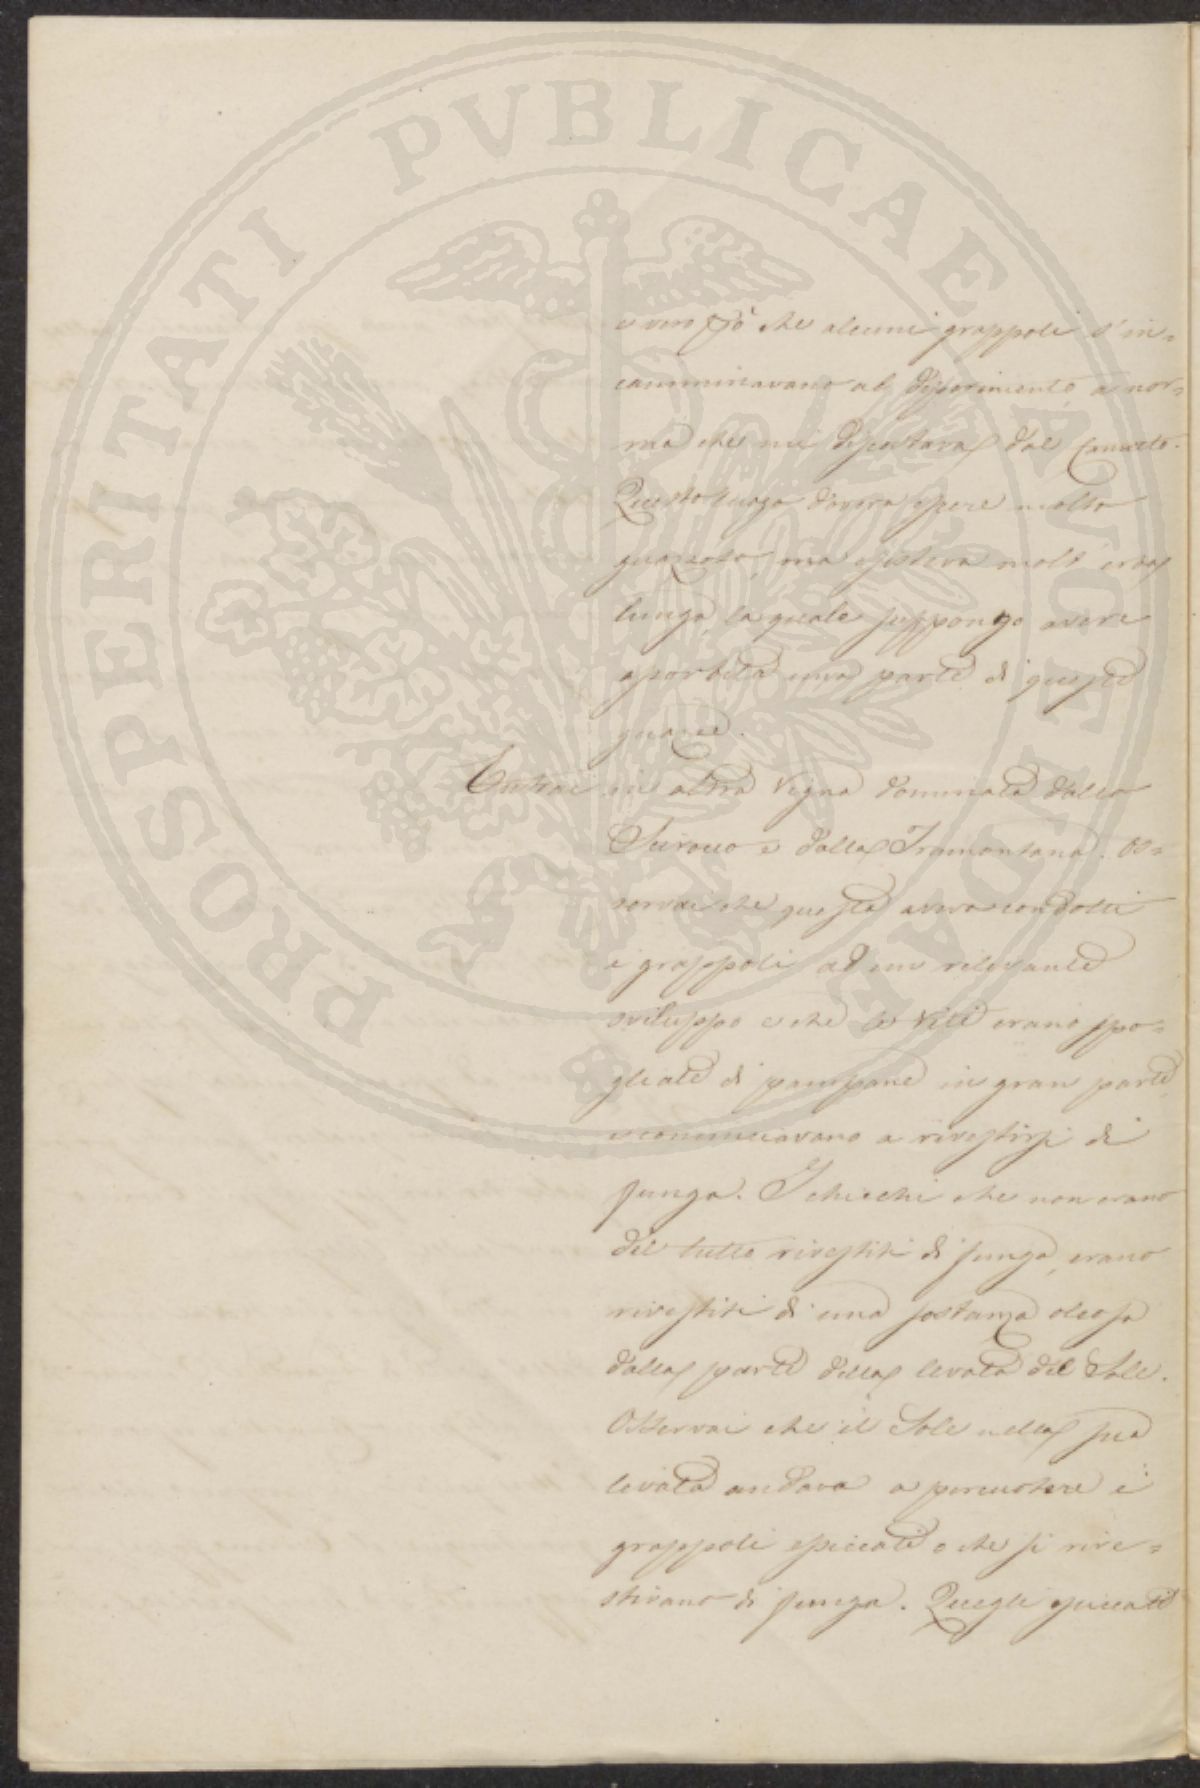 PROSPERITATI PVBLICAE AVGENDAE
è vero però che alcuni grappoli s'in=
camminavano al deperimento, a nor=
ma che mi discostava dal Canneto.
Questo luogo doveva essere molto
guazzoso, ma esisteva molt' erba
lunga, la quale suppongo avere
assorbita una parte di questa
guazza.
Entrai in altra Vigna dominata dallo
Scirocco e dalla Tramontana. Os=
servai che questa aveva condotti
i grappoli ad un rilevante
sviluppo e che le Viti erano spo=
gliate di pampane in gran parte,
e cominciavano a rivestirsi di
funga. I chicchi che non erano
del tutto rivestiti di funga, erano
rivestiti di una sostanza oleosa
dalla parte della levata del Sole.
Osservai che il Sole nella sua
levata andava a percuotere i
grappoli essiccati o che si rive=
stivano di funga. Quegli essiccati